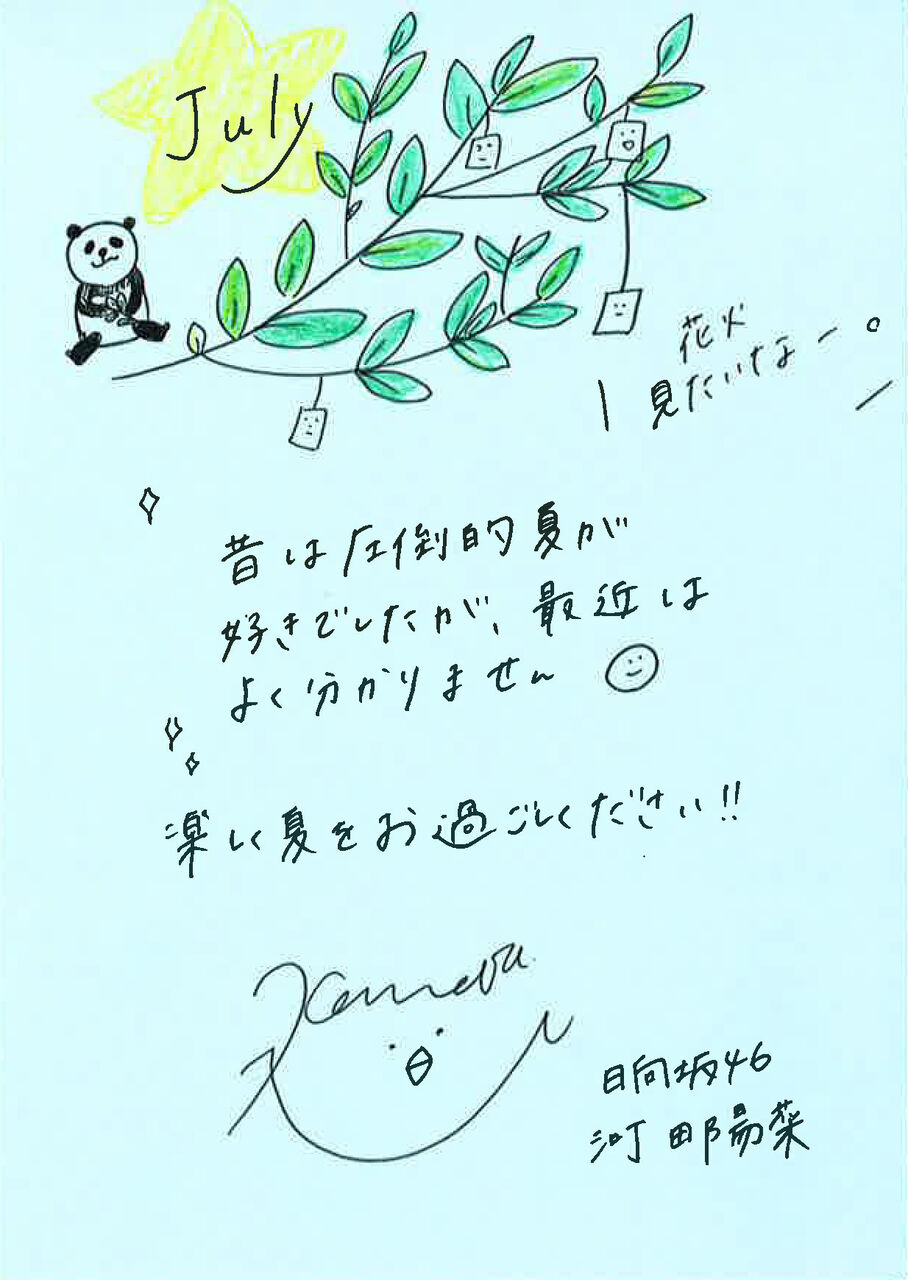 July
花火
見たいなー。
昔は圧倒的夏が
好きでしたが、最近は
よく分かりません
楽しく夏をお過ごしください!!
Kawata
日向坂46
河田陽菜